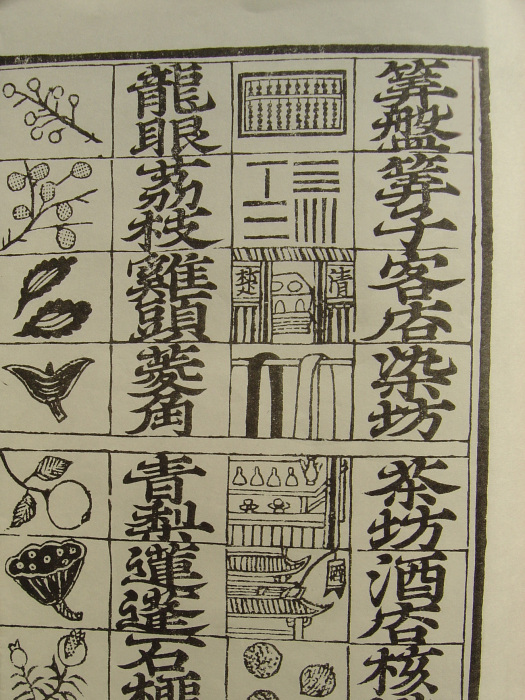 筭盤筭子客店染坊
茶坊酒店核
清
楚
酒
龍眼荔枝雞頭菱角
青梨蓮蓬石榴